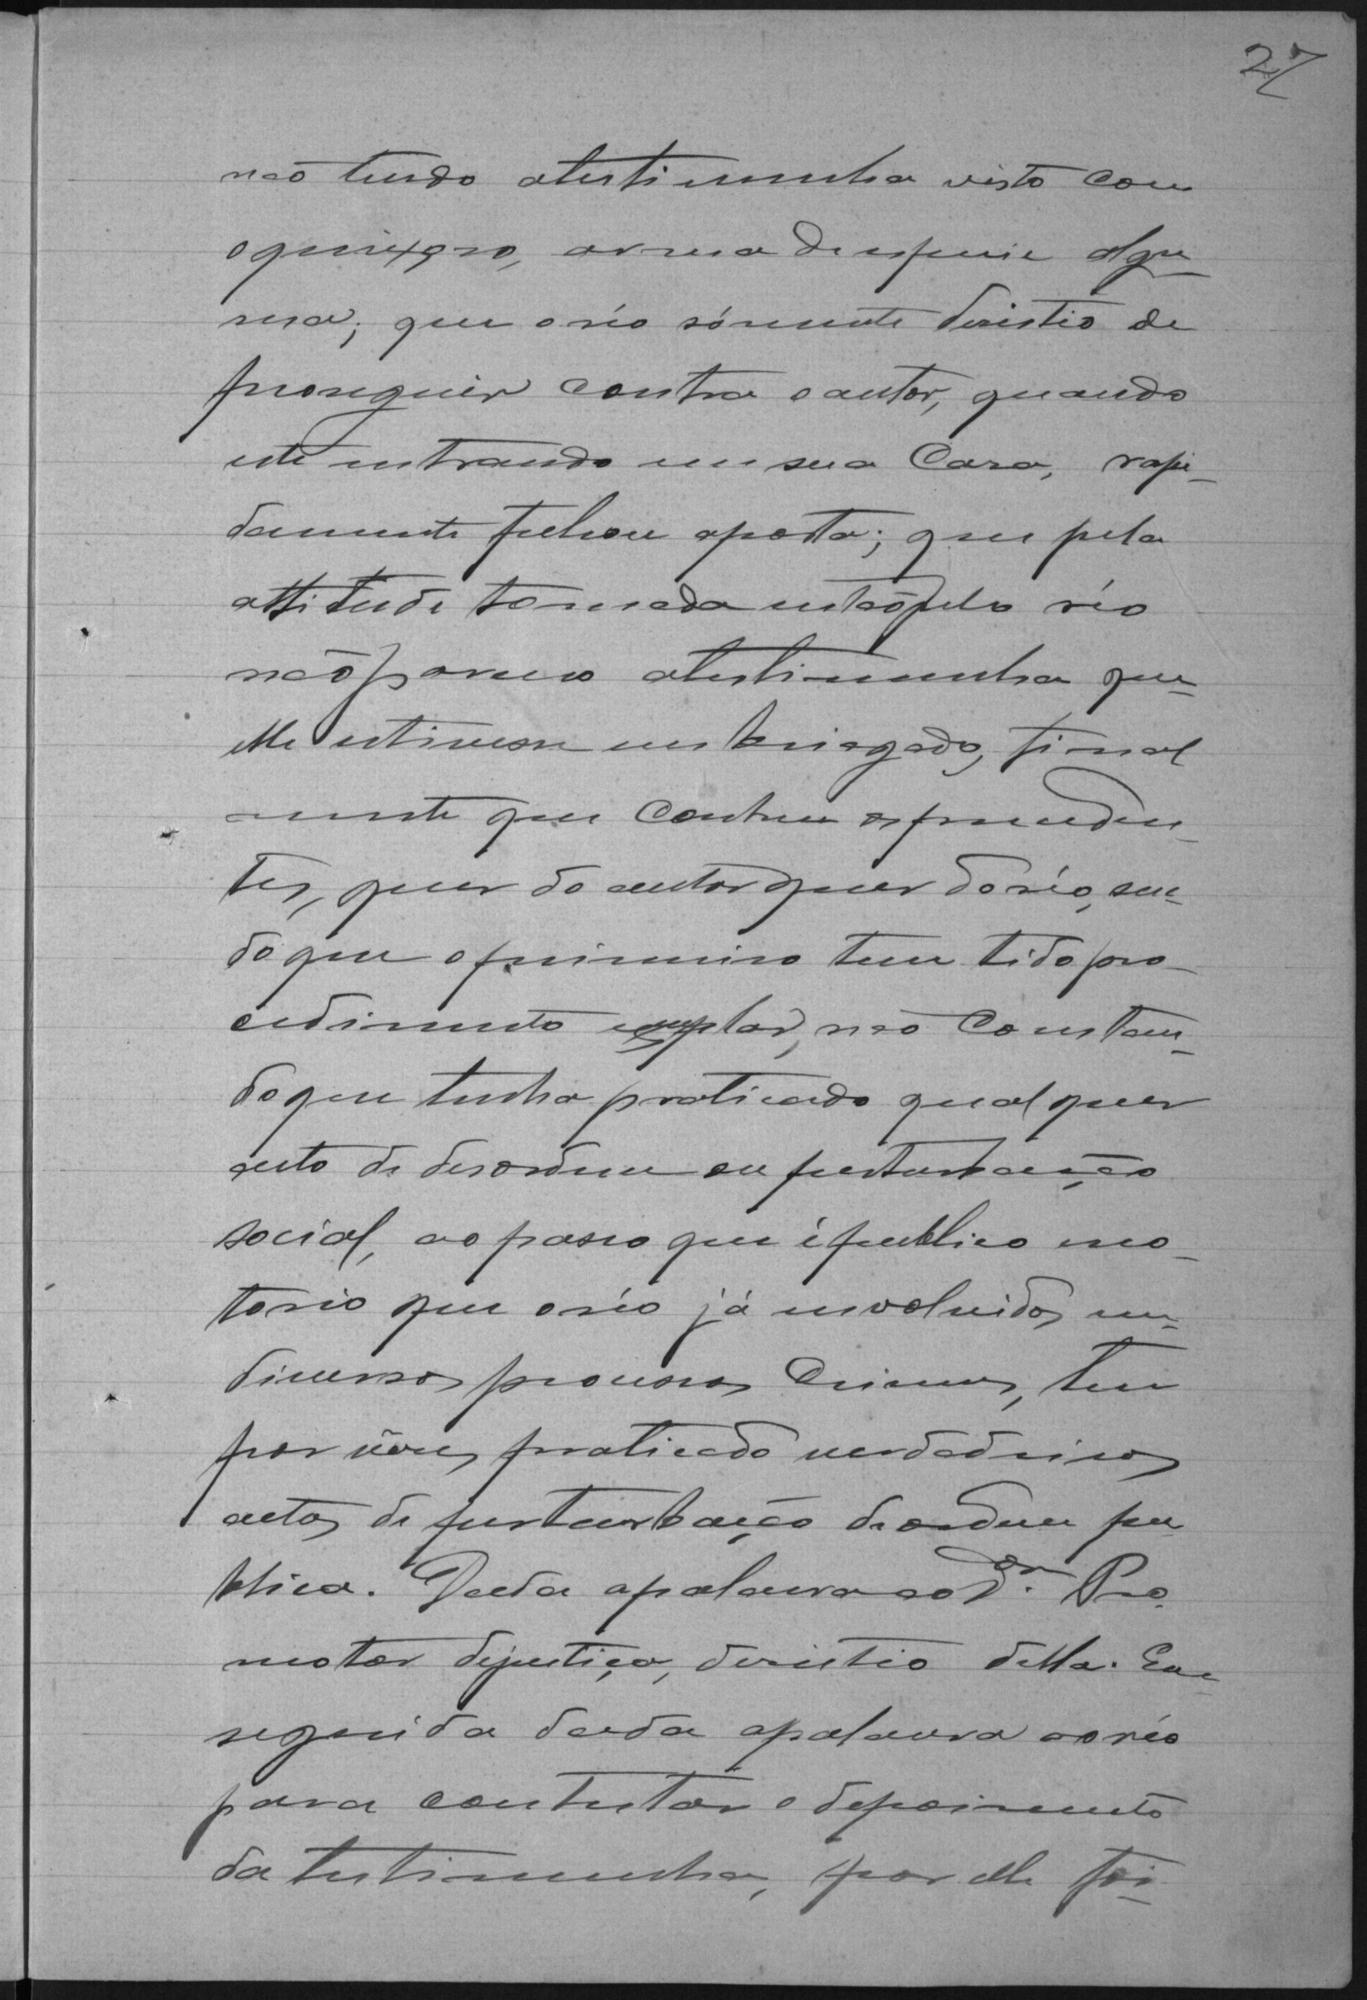 27
não tendo atestimunha visto com
oqueixoso, arma despecie algu-
ma; que oréo sómente desistio de
proseguir contra oautor, quando
este entrando em sua Casa, rapi-
damente fechou aporta; que pela
attitude tomada então pelo réo
não pareceo atestimunha que
elle estivesse embriagado, final
mente que conhece osprceden
tes, quer do autor quer do réo, sen-
do que oprimeiro tem tido pro-
cedimento exemplar, não constan-
do que tenha praticado qual quer
acto de desordem ou perturbação
social, ao passo que é publico eno-
torio que oréo já envolvido em
diversos processos Crimes, tem
por vezes praticado verdadeiros
actos de perturbação da ordem pu
blica. Dada apalavra ao Dr. Pro
motor dejustiça, desistio della. Em
seguida dada apalavra aoréo
para contestar o depoimento
da testimunha, por elle foi